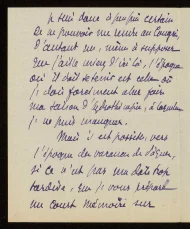 Je suis donc à peu près certain
de ne pouvoir me rendre au Congrès,
D'autant que, même à supposer
que j'aille mieux d'ici là, l'époque
où il doit se tenir est celle où
je dois forcément aller faire
ma saison d'hydrothérapie, à laquelle
je ne puis manquer.
Mais il est possible, vers
l'époque des vacances de Pâques,
si ce n'est pas un délai trop
tardif, que je vous prépare
un court mémoire sur